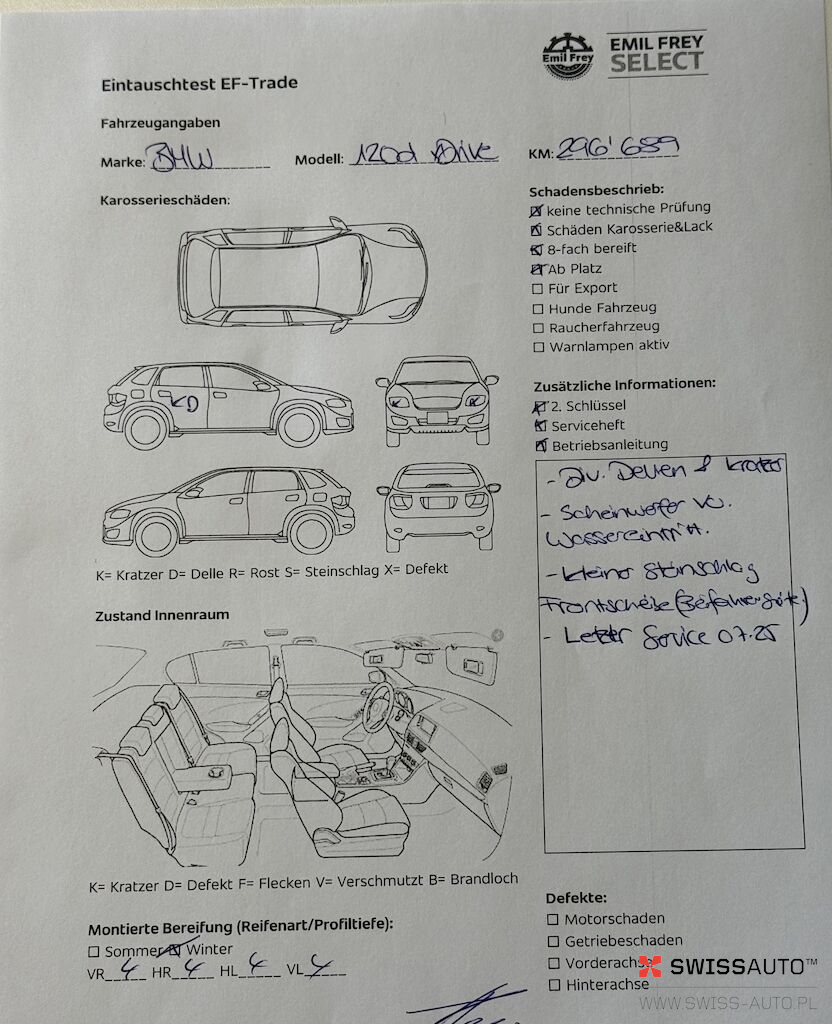 Emil Frey
EMIL FREY
SELECT
Eintauschtest EF-Trade
Fahrzeugangaben
Marke: BMW Modell: 120d xDrive KM: 296'689
Karosserieschäden:
D
K= Kratzer D= Delle R= Rost S= Steinschlag X= Defekt
Zustand Innenraum
K= Kratzer D= Defekt F= Flecken V= Verschmutzt B= Brandloch
Montierte Bereifung (Reifenart/Profiltiefe):
☐ Sommer ☒ Winter
VR 4 HR 4 HL 4 VL 4
Schadensbeschrieb:
☒ keine technische Prüfung
☒ Schäden Karosserie&Lack
☒ 8-fach bereift
☒ Ab Platz
☐ Für Export
☐ Hunde Fahrzeug
☐ Raucherfahrzeug
☐ Warnlampen aktiv
Zusätzliche Informationen:
☒ 2. Schlüssel
☒ Serviceheft
☒ Betriebsanleitung
- Div. Dellen & Kratzer
- Scheinwerfer vo.
Wassereintritt.
- kleiner Steinschlag
Frontscheibe (Beifahrerseite.)
- Letzter Service 07.25
Defekte:
☐ Motorschaden
☐ Getriebeschaden
☐ Vorderachse
☐ Hinterachse
SWISSAUTO™
WWW.SWISS-AUTO.PL